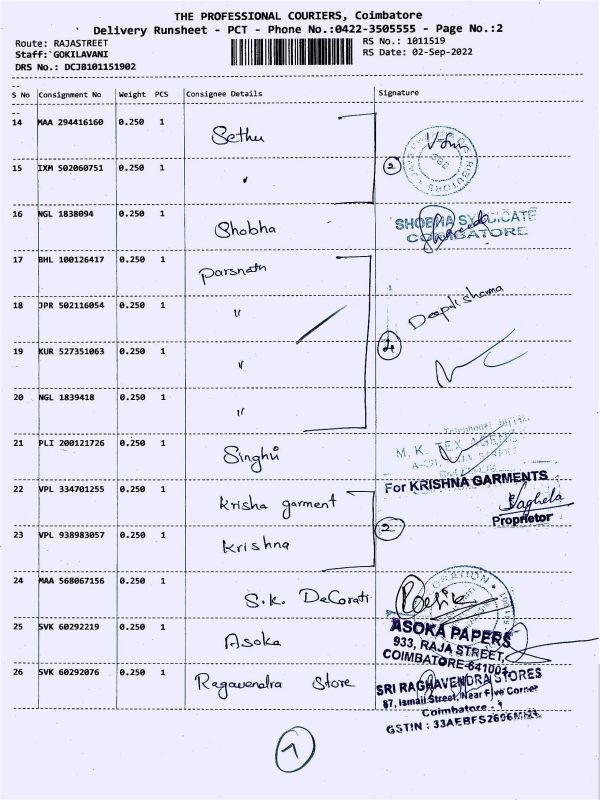 THE PROFESSIONAL COURIERS, Coimbatore
Delivery Runsheet - PCT - Phone No.:0422-3505555 - Page No.:2
Route: RAJASTREET
RS No.: 1011519
Staff: GOKILAVANI
RS Date: 02-Sep-2022
DRS No.: DCJB101151902
S No Consignment No Weight PCS Consignee Details Signature
14 MAA 294416160 0.250 1 Sethu
15 IXM 502060751 0.250 1 " 2
16 NGL 1838094 0.250 1 Shobha SHOBHA SYNDICATE
COIMBATORE
17 BHL 100126417 0.250 1 Parsnath
18 JPR 502116054 0.250 1 " Deepti sharma
19 KUR 527351063 0.250 1 " 4
20 NGL 1839418 0.250 1 "
21 PLI 200121726 0.250 1 Singhvi M. K. TEX AGENCY
For KRISHNA GARMENTS
22 VPL 334701255 0.250 1 Krisha garment Vaghela
Proprietor
23 VPL 938983057 0.250 1 Krishna 2
24 MAA 568067156 0.250 1 S.K. DeCorati
25 SVK 60292219 0.250 1 Asoka ASOKA PAPERS
933, RAJA STREET,
COIMBATORE-641001
26 SVK 60292076 0.250 1 Ragavendra Store SRI RAGHAVENDRA STORES
87, Ismail Street, Near Five Corner
Coimbatore - 1
GSTIN : 33AEBFS2696
1